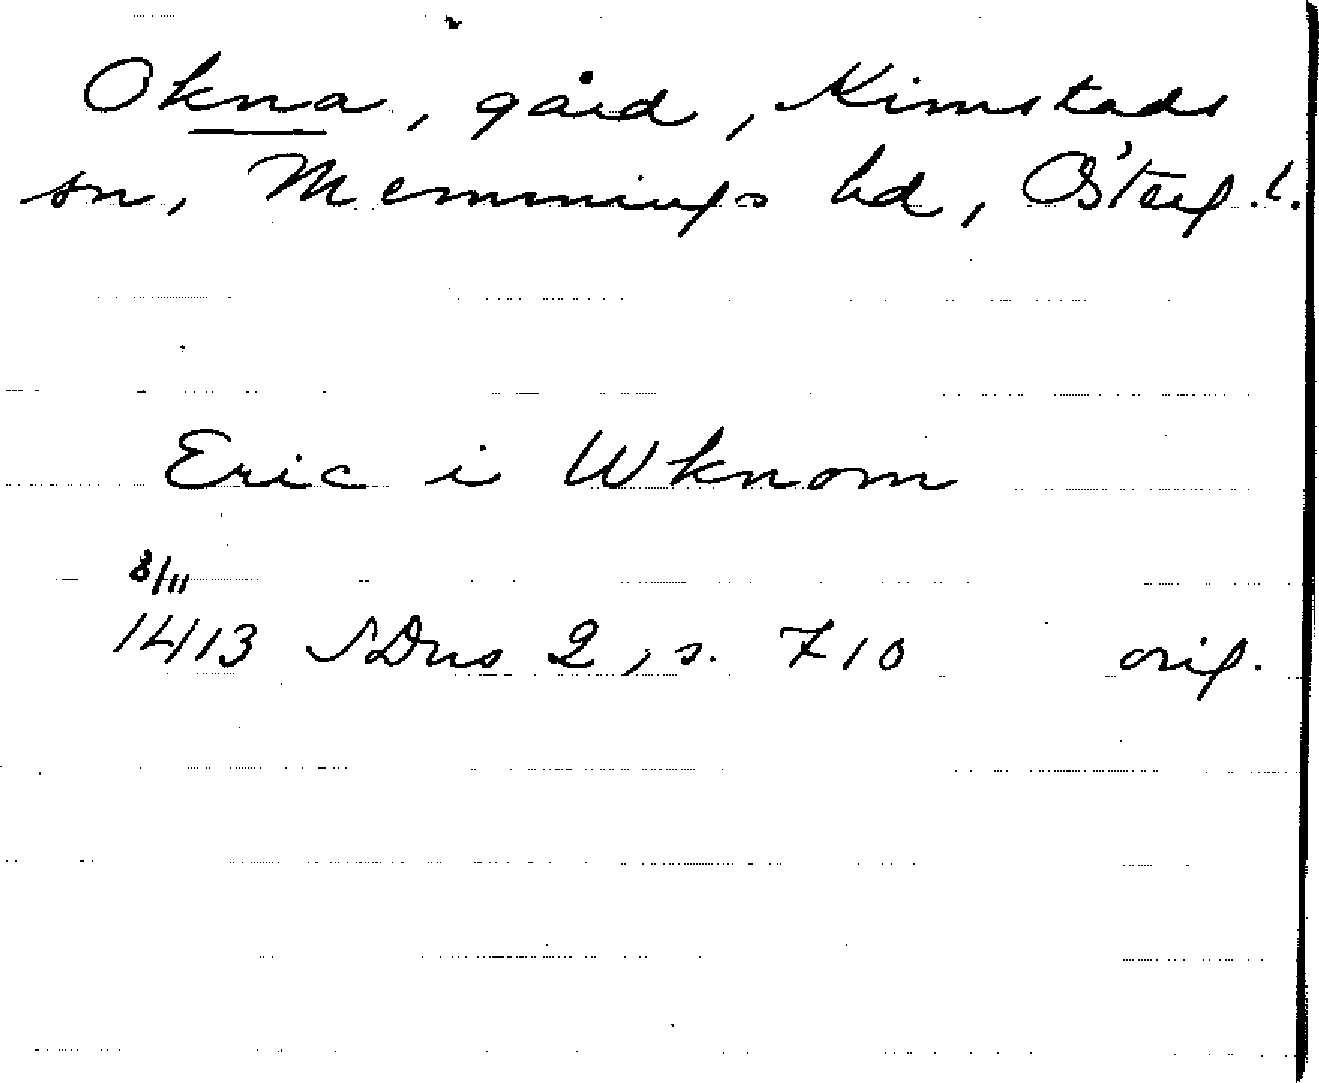 Okna, gård, Kimstads
sn, Memmings hd, Östergl.
Eric i Wknom
8/11
1413 SDns 2, s. 710 orig.